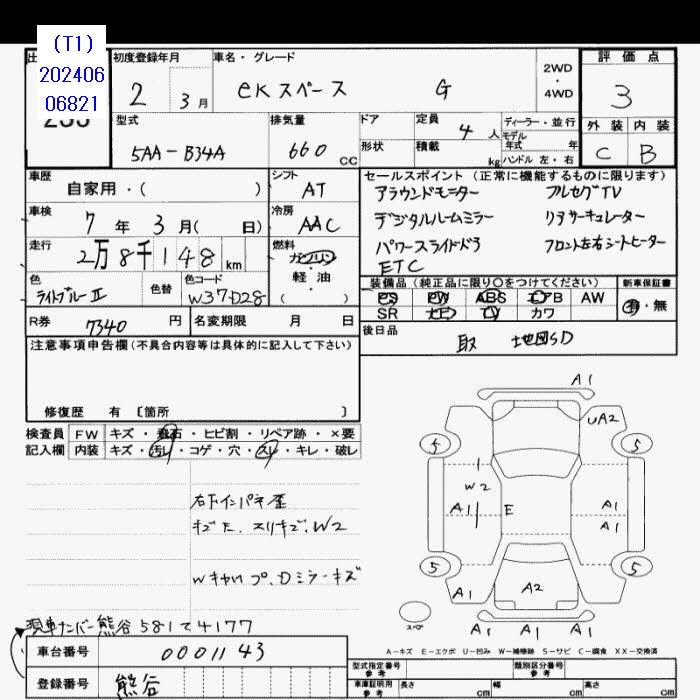 (T1)
202406
06821
初度登録年月
車名・グレード
2 3月
eKスペース G
2WD
・
4WD
評価点
3
型式
排気量
ドア
定員
ディーラー・並行
外装 内装
5AA-B34A
660 CC
4人
モデル
年式 年
形状
積載
kg
ハンドル 左・右
C B
車歴
自家用・( )
シフト
AT
車検
7年 3月( 日)
冷房
AAC
走行
2万8千148km
燃料
ガソリン
軽・油
( )
色
ライトブルーII
色替
色コード
W37D28
R券
7340円
名変期限 月 日
セールスポイント(正常に機能するものに限ります)
アラウンドモニター フルセグTV
デジタルルームミラー リアサーキュレーター
パワースライドドア フロント左右シートヒーター
ETC
装備品(純正品に限り○をつけてください)
新車保証書
PS PW ABS エアB AW
有・無
SR ナビ TV カワ
後日品
取 地図SD
注意事項申告欄(不具合内容等は具体的に記入して下さい)
修復歴 有 〔箇所 〕
検査員
記入欄
FW キズ・飛石・ヒビ割・リペア跡・×要
内装 キズ・汚レ・コゲ・穴・スレ・キレ・破レ
右下インパネ歪
キズ大、スリキズ、W2
Wキャップ、Dミラーキズ
A1
UA2
5 5
W2
A1 E A1
A1
5 5
A1 A2
A1 A1 A1
スペア
A-キズ E-エクボ U-凹み W-補修跡 S-サビ C-腐食 XX-交換済
現車ナンバー熊谷581て4177
車台番号 0001143
登録番号 熊谷
型式指定番号
参考
類別区分番号
参考
車庫証明用
参考
長さ cm 幅 cm 高さ cm